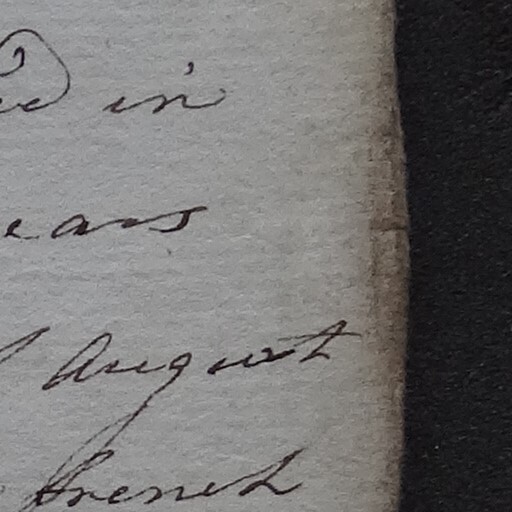 in
ears
August
french